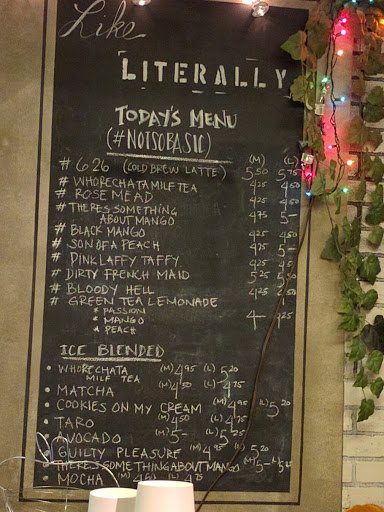 Like
LITERALLY
TODAY'S MENU
(#NOTSOBASIC)
(M) (L)
# 626 (COLD BREW LATTE) 5.50 5.75
# WHORECHATA MILF TEA 4.25 4.50
# ROSE MEAD 4.25 4.50
# THERES SOMETHING
ABOUT MANGO 4.75 5-
# BLACK MANGO 4.25 4.50
# SON OF A PEACH 4.75 5-
# PINK LAFFY TAFFY 4.25 4.5
# DIRTY FRENCH MAID 5.25 5.50
# BLOODY HELL 4.25 4.50
# GREEN TEA LEMONADE
* PASSION
* MANGO 4- 4.25
* PEACH
ICE BLENDED
• WHORECHATA (M) 4.95 (L) 5.20
MILF TEA
• MATCHA (M) 4.50 (L) 4.75
• COOKIES ON MY CREAM (M) 4.95 (L) 5.20
• TARO (M) 4.50 (L) 4.75
• AVOCADO (M) 5- (L) 5.25
• GUILTY PLEASURE (M) 4.95 (L) 5.20
• THERE'S SOMETHING ABOUT MANGO (M) 5- (L)
• MOCHA (M) 4.50 (L) 4.75